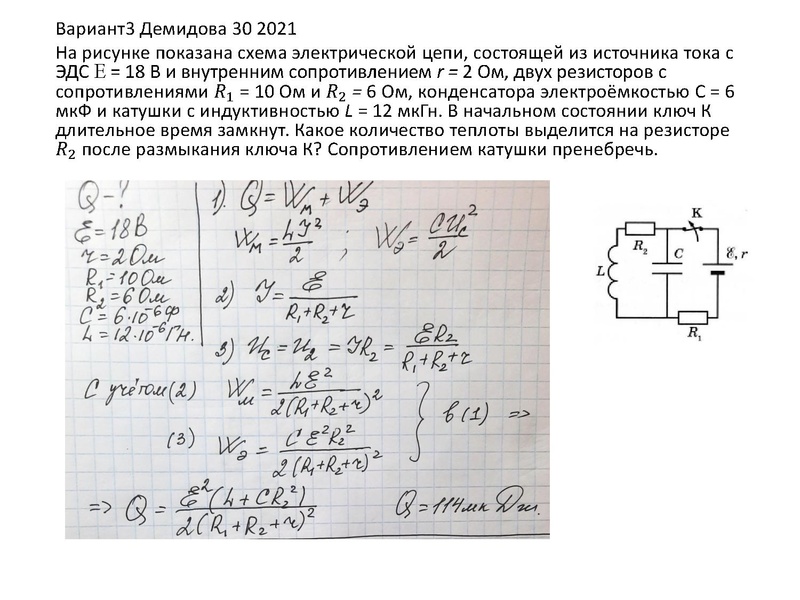 Вариант3 Демидова 30 2021
На рисунке показана схема электрической цепи, состоящей из источника тока с
ЭДС E = 18 В и внутренним сопротивлением r = 2 Ом, двух резисторов с
сопротивлениями R₁ = 10 Ом и R₂ = 6 Ом, конденсатора электроёмкостью C = 6
мкФ и катушки с индуктивностью L = 12 мкГн. В начальном состоянии ключ К
длительное время замкнут. Какое количество теплоты выделится на резисторе
R₂ после размыкания ключа К? Сопротивлением катушки пренебречь.
Q - ?
ℰ = 18 В
r = 2 Ом
R₁ = 10 Ом
R₂ = 6 Ом
C = 6·10⁻⁶ Ф
L = 12·10⁻⁶ Гн.
1). Q = Wм + Wэ
Wм = LI²/2 ; Wэ = CUc²/2
2) I = ℰ/(R₁+R₂+r)
3) Uc = U₂ = IR₂ = ℰR₂/(R₁+R₂+r)
С учётом (2) Wм = Lℰ²/2(R₁+R₂+r)²
(3) Wэ = Cℰ²R₂²/2(R₁+R₂+r)²
} в (1) =>
=> Q = ℰ²(L+CR₂²)/2(R₁+R₂+r)² Q = 114 мк Дж.
K
R₂
C
ℰ, r
L
R₁